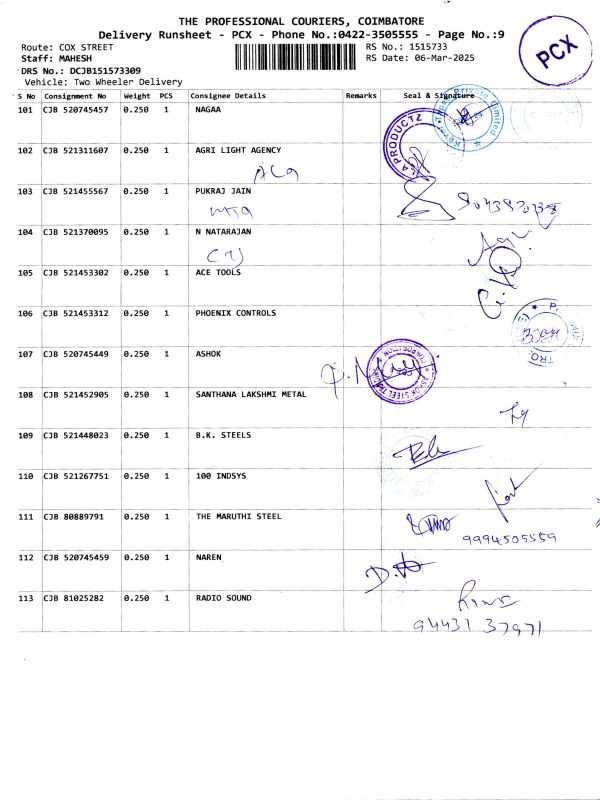 THE PROFESSIONAL COURIERS, COIMBATORE
Delivery Runsheet - PCX - Phone No.:0422-3505555 - Page No.:9
Route: COX STREET RS No.: 1515733
Staff: MAHESH RS Date: 06-Mar-2025
DRS No.: DCJB151573309
Vehicle: Two Wheeler Delivery
PCX
S No Consignment No Weight PCS Consignee Details Remarks Seal & Signature
101 CJB 520745457 0.250 1 NAGAA
102 CJB 521311607 0.250 1 AGRI LIGHT AGENCY
103 CJB 521455567 0.250 1 PUKRAJ JAIN
104 CJB 521370095 0.250 1 N NATARAJAN
105 CJB 521453302 0.250 1 ACE TOOLS
106 CJB 521453312 0.250 1 PHOENIX CONTROLS
107 CJB 520745449 0.250 1 ASHOK
108 CJB 521452905 0.250 1 SANTHANA LAKSHMI METAL
109 CJB 521448023 0.250 1 B.K. STEELS
110 CJB 521267751 0.250 1 100 INDSYS
111 CJB 80889791 0.250 1 THE MARUTHI STEEL
9994505559
112 CJB 520745459 0.250 1 NAREN
113 CJB 81025282 0.250 1 RADIO SOUND
94431 37971